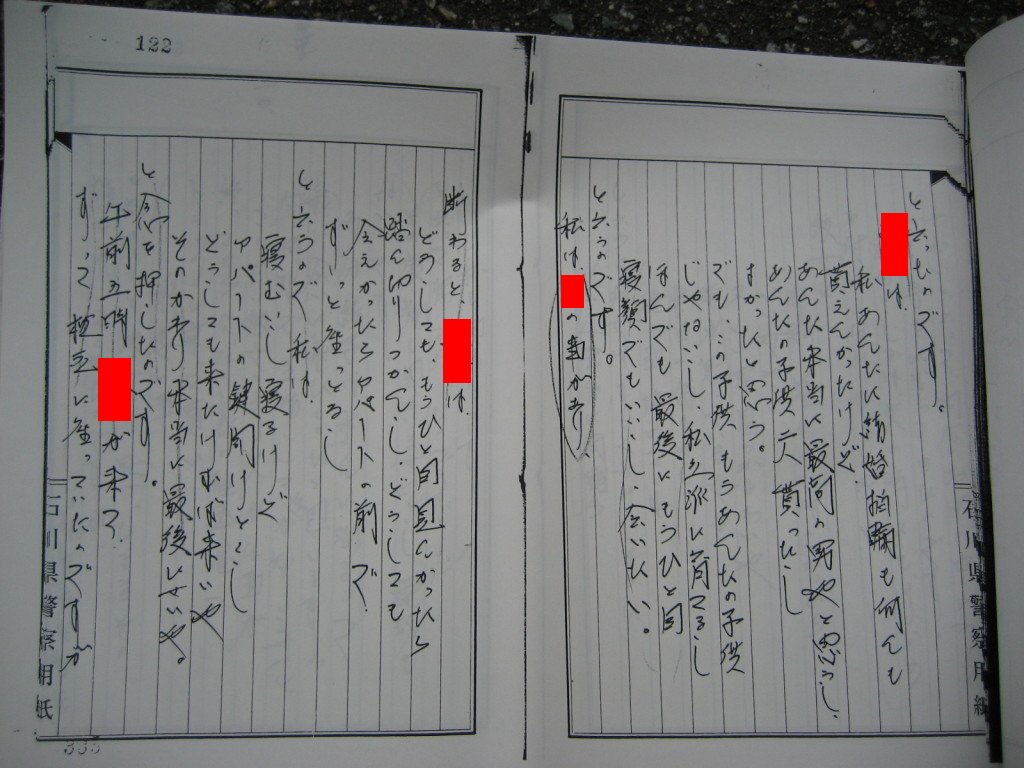 と云ったのです。
は、
私、あんたに結婚指輪も何んも
貰えんかったけど、
あんた本当に最高の男やと思うし、
あんたの子供二人貰ったし
よかったと思う。
でも、この子供もうあんたの子供
じゃないし、私立派に育てるし
ほんでも最後にもうひと目
寝顔でもいいし、会いたい。
と云うのです。
私は、の事があり
石川県警察用紙
122
断わると、は、
どうしても、もうひと目見んかったら
踏ん切りつかんし、どうしても
会えんかったらアパートの前で
ずっと座っとるし
と云うので私は、
寝むいし寝るけど
アパートの鍵開けとくし
どうしても来たければ来いや
そのかわり本当に最後にせいや。
と念を押したのです。
午前五時が来て、
ずっと枕元に座っていたのですが
石川県警察用紙
335